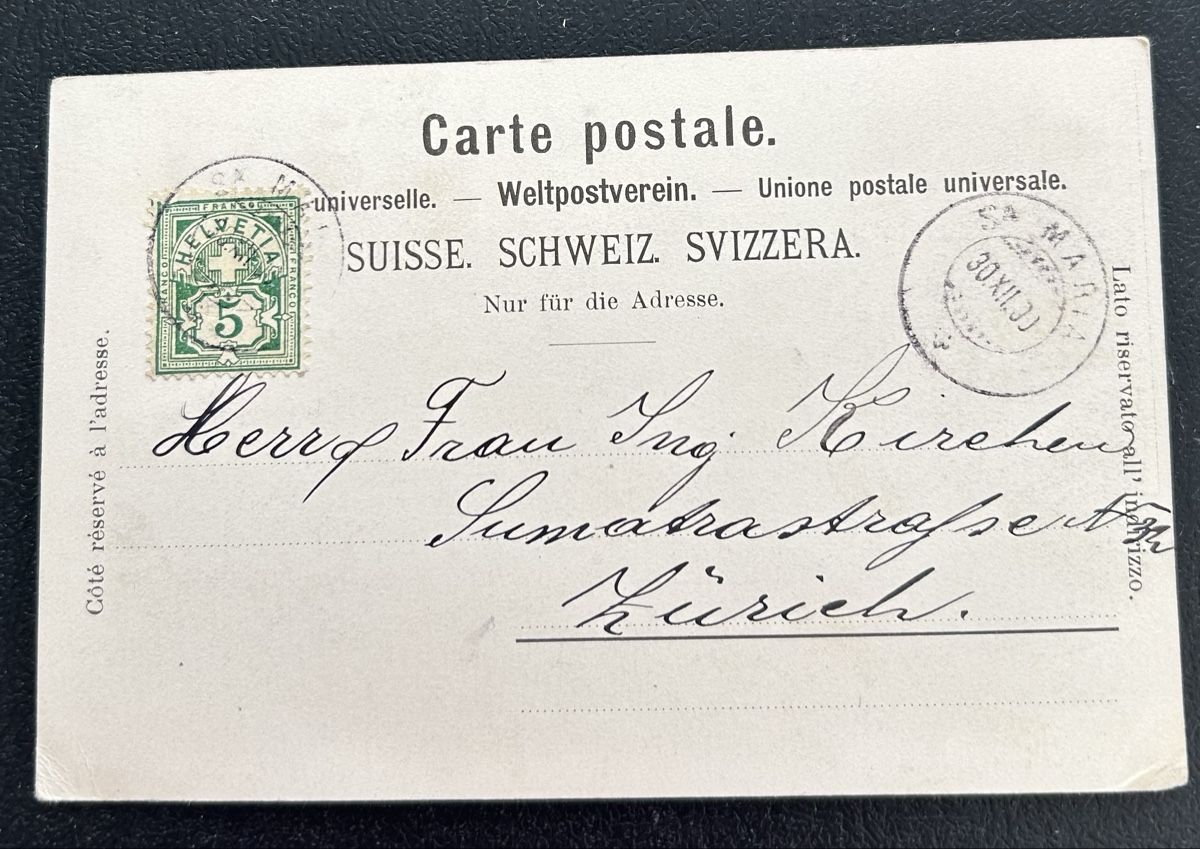 Carte postale.
universelle. — Weltpostverein. — Unione postale universale.
SUISSE. SCHWEIZ. SVIZZERA.
Nur für die Adresse.
FRANCO
FRANCO
FRANCO
HELVETIA
5
SA MARIA
30 XII.00
Côté réservé à l'adresse.
Lato riservato all' indirizzo.
Herr & Frau Ing. Kirchen
Sumatrastrasse
Zürich.